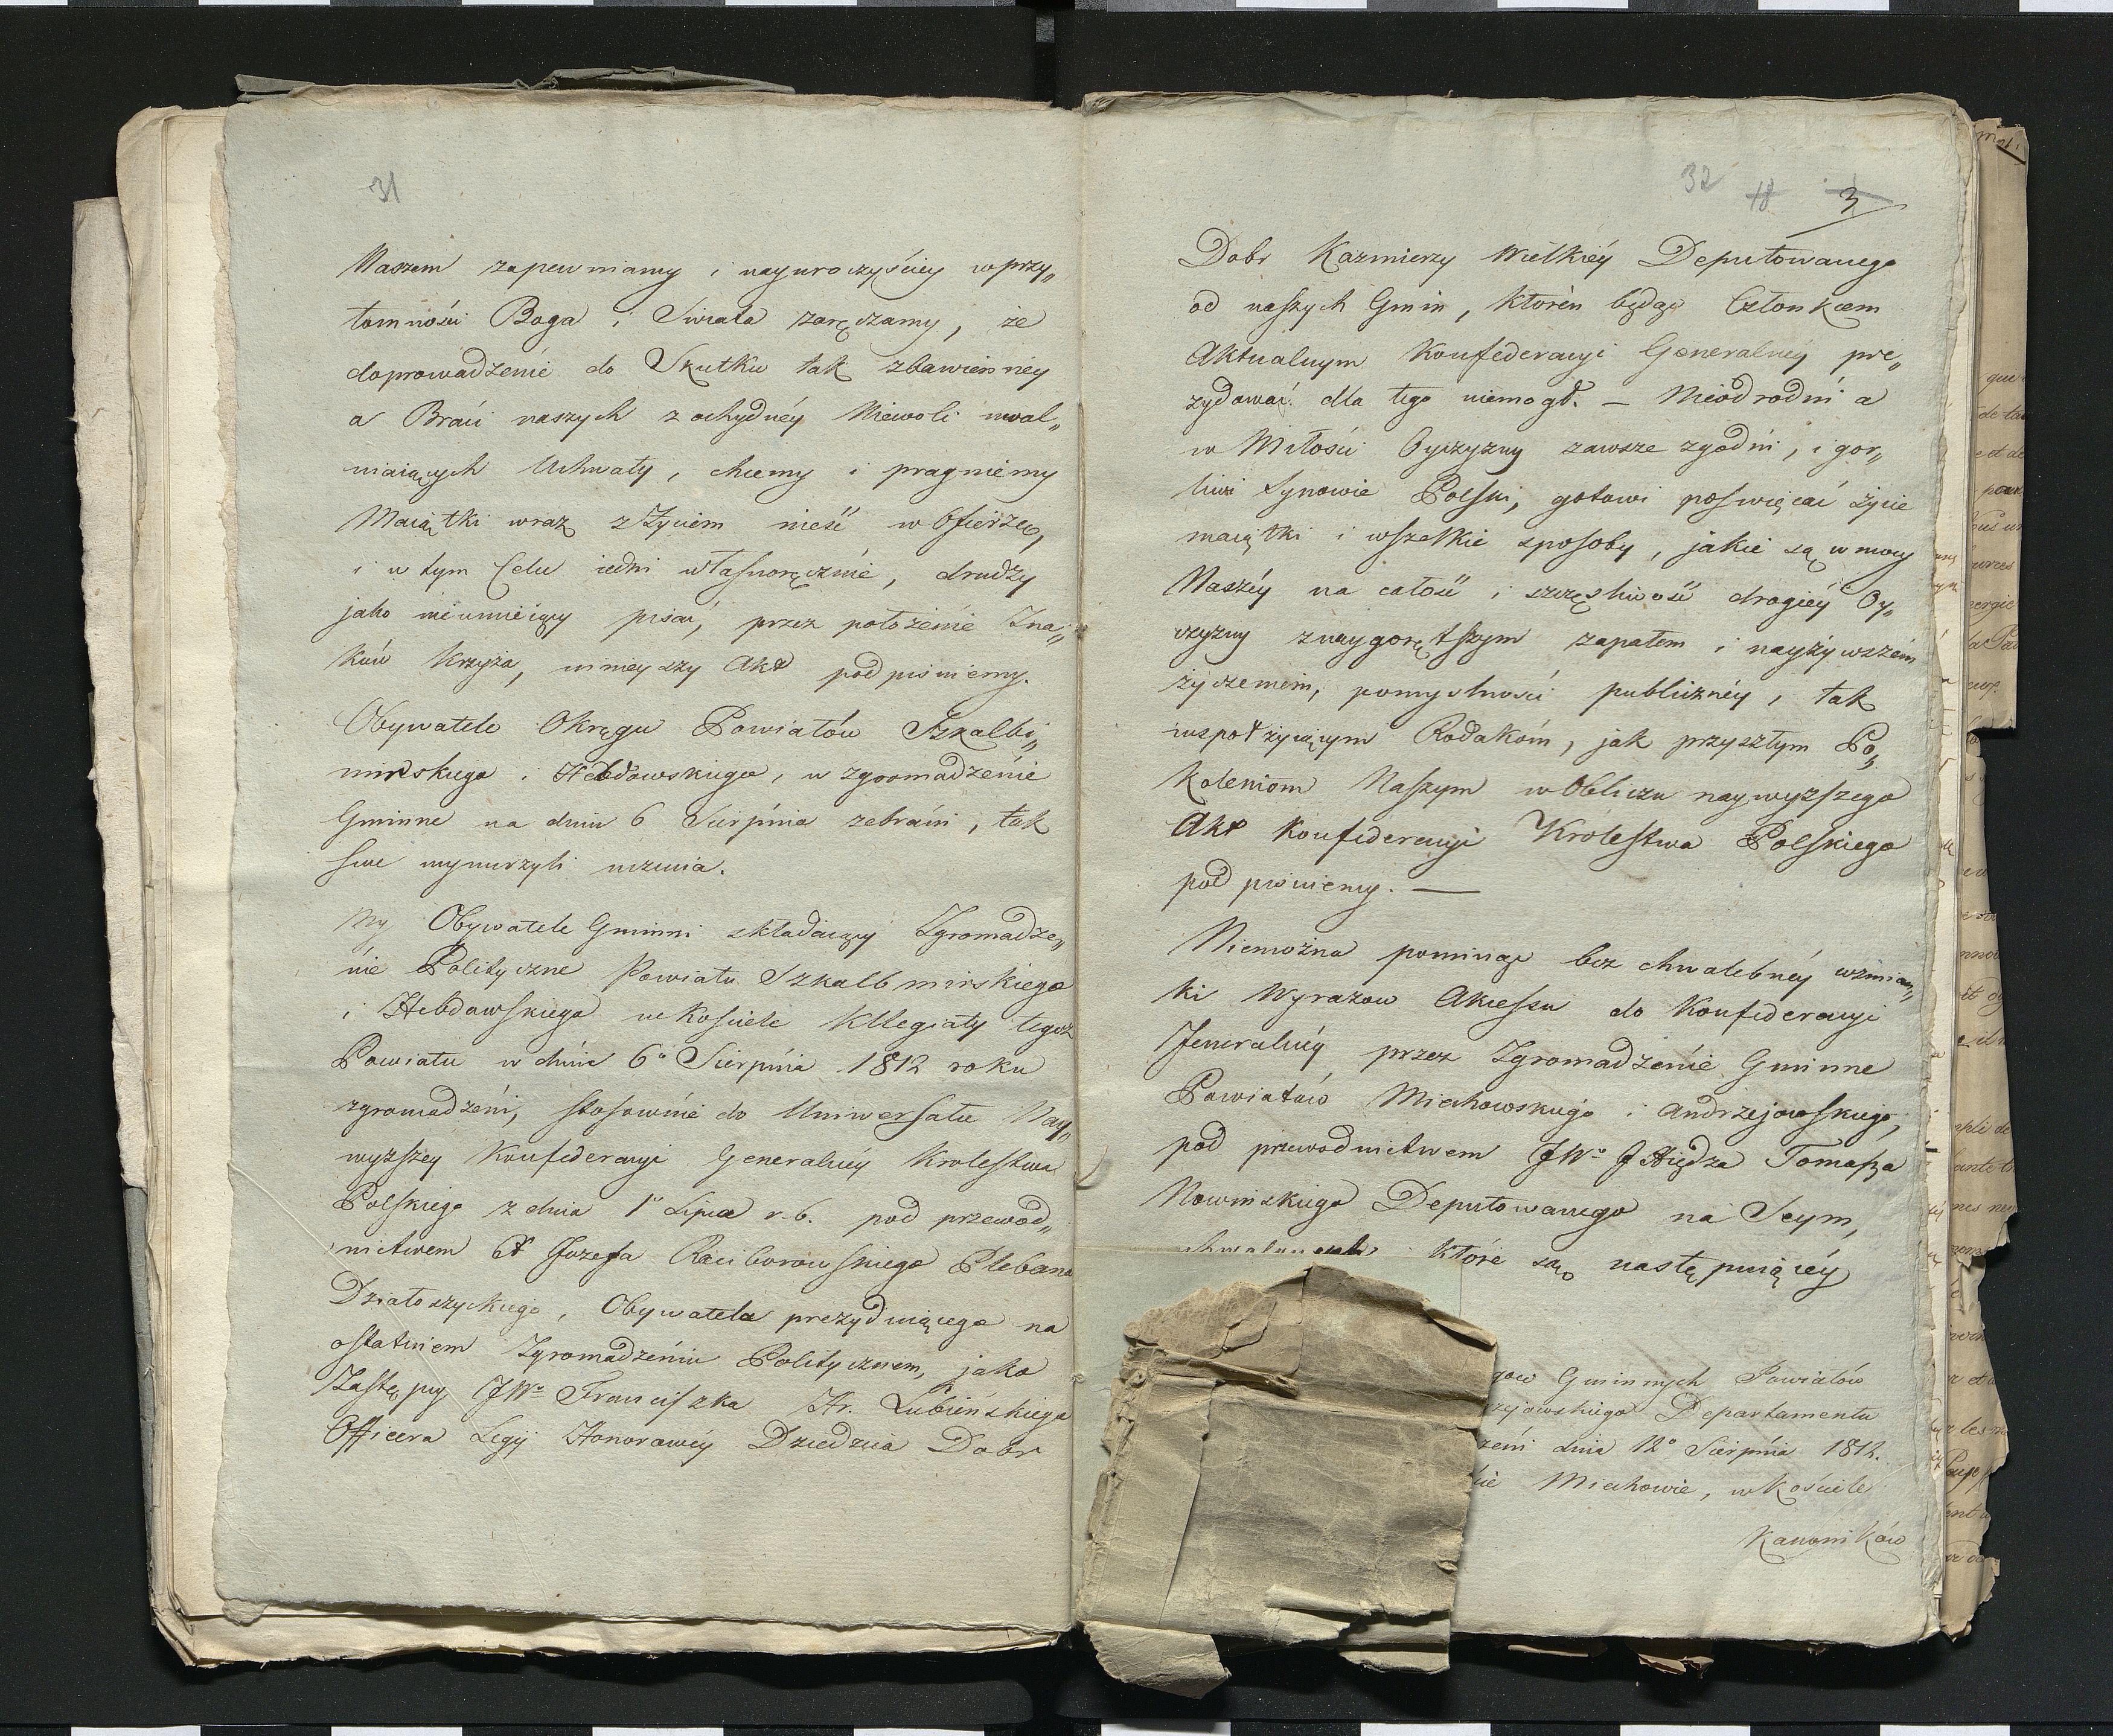 31
Naszem zapewniamy i nayuroczyściey w przy„
tomności Boga i Swiata zaręczamy, że
doprowadzenie do Skutku tak zbawienney
a Braci naszych z ochydnéy Niewoli uwal„
niaiących Uchwały, chcemy i pragniemy
Maiątki wraz z Życiem nieść w Ofierze,
i w tym Celu iedni własnoręcznie, drudzy
jako nieumieiący pisać, przez położenie Zna„
ków Krzyża, ninieyszy Akt podpisuiemy.
Obywatele Okręgu Powiatów Szkalbi„
mirskiego i Hebdowskiego, w zgromadzenie
Gminne na dniu 6 Sierpnia zebrani, tak
swe wynurzyli uczucia.
My Obywatele Gminni składaiący Zgromadze„
nie Polityczne Powiatu Szkalbmirskiego
i Hebdowskiego w Kościele Kllegiaty tegoż
Powiatu w dniu 6° Sierpnia 1812 roku
zgromadzeni, stosownie do Uniwersału Nay„
wyższey Konfederacyi Generalnéy Krolestwa
Polskiego z dnia 1° Lipca r. b. pod przewod„
nictwem X Jozefa Raciborowskiego Plebana
Działoszyckiego, Obywatela prezyduiącego na
ostatniem Zgromadzeniu Politycznem, jako
Zastępcy JW° Franciszka Hr. Łubieńskiego
Officera Legij Honorowéy Dziedzica Dobr
32 18 3
Dobr Kazmierzy Wielkiéy Deputowanego
od naszych Gmin, któren będąc Członkiem
Aktualnym Konfederacyi Generalnéy pre„
zydować dla tego niemogł. — Nieodrodni a
w Miłości Oyczyzny zawsze zgodni, i gor„
liwi Synowie Polski, gotowi poswięcać życie
maiątki i wszelkie sposoby, jakie są w mocy
Naszéy na całość i szczęsliwość drogiéy Oy„
czyzny z naygorętszym zapałem i nayżywszém
życzeniem, pomyslności publicznéy, tak
wspołżyiącym Rodakóm, jak przyszłym Po„
koleniom Naszym w Obliczu naywyższego
Akt Konfederacyi Krolestwa Polskiego
podpisuiemy. —
Niemożna pominąć bez chwalebnéy wzmian„
ki Wyrazow Akcessu do Konfederacyi
Jeneralnéy przez Zgromadzenie Gminne
Powiatów Miechowskiego i Andrzejowskiego,
pod przewodnictwem JW° J Xiędza Tomasza
Nowinskiego Deputowanego na Seym,
które są następuiącéy
Gminnych Powiatów
Departamentu
dnia 12° Sierpnia 1812.
Miechowie, w Kościele
Kanoników